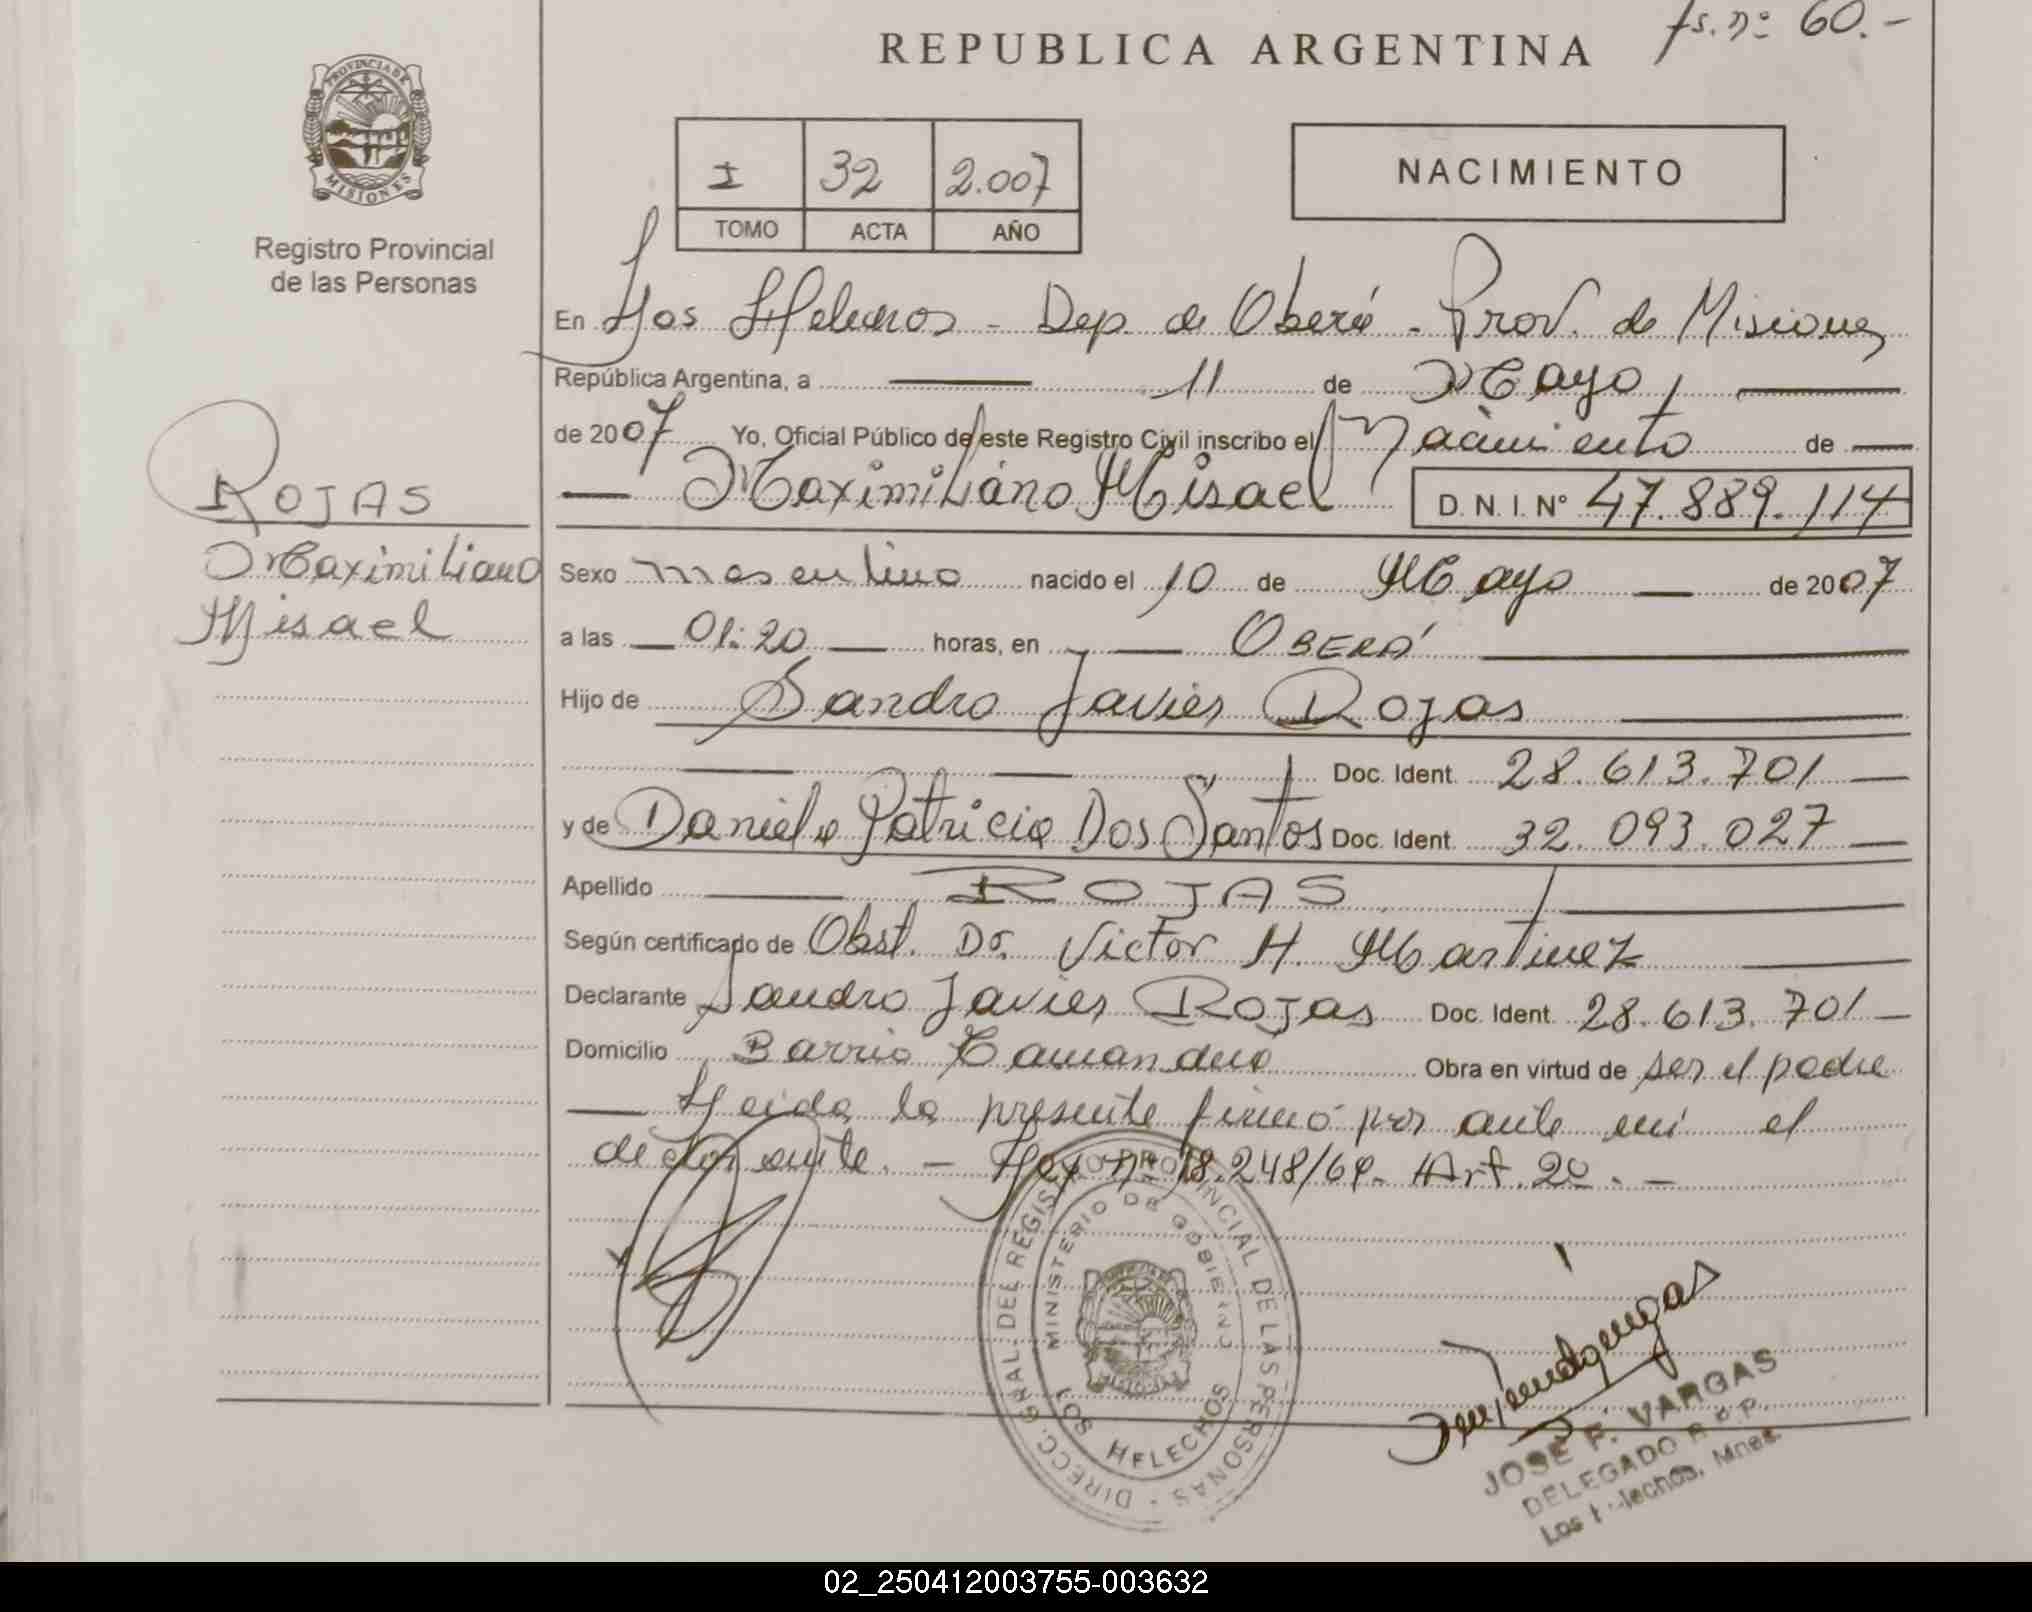 fs. nº 60.-
REPUBLICA ARGENTINA
PROVINCIA DE
MISIONES
Registro Provincial
de las Personas
I 32 2.007
TOMO ACTA AÑO
NACIMIENTO
En Los Helechos - Dep. de Oberá - Prov. de Misiones
República Argentina, a 11 de Mayo,
de 2007 Yo, Oficial Público de este Registro Civil inscribo el Nacimiento de
Maximiliano Misael D.N.I. Nº 47.889.114
ROJAS
Maximiliano
Misael
Sexo masculino nacido el 10 de Mayo de 2007
a las 01:20 horas, en OBERÁ
Hijo de Sandro Javier Rojas
Doc. Ident. 28.613.701
y de Daniela Patricia Dos Santos Doc. Ident. 32.093.027
Apellido ROJAS
Según certificado de Obst. Dr. Victor H. Martinez
Declarante Sandro Javier Rojas Doc. Ident. 28.613.701
Domicilio Barrio Obra en virtud de ser el padre
Leida la presente firmó por ante mi el
declarante. - Ley nº 18.248/69. Art. 2º. -
DIRECC. GRAL. DEL REGISTRO PROVINCIAL DE LAS PERSONAS
MINISTERIO DE GOBIERNO
LOS HELECHOS
JOSE F. VARGAS
DELEGADO R P.
Los Helechos, Mnes.
02_250412003755-003632